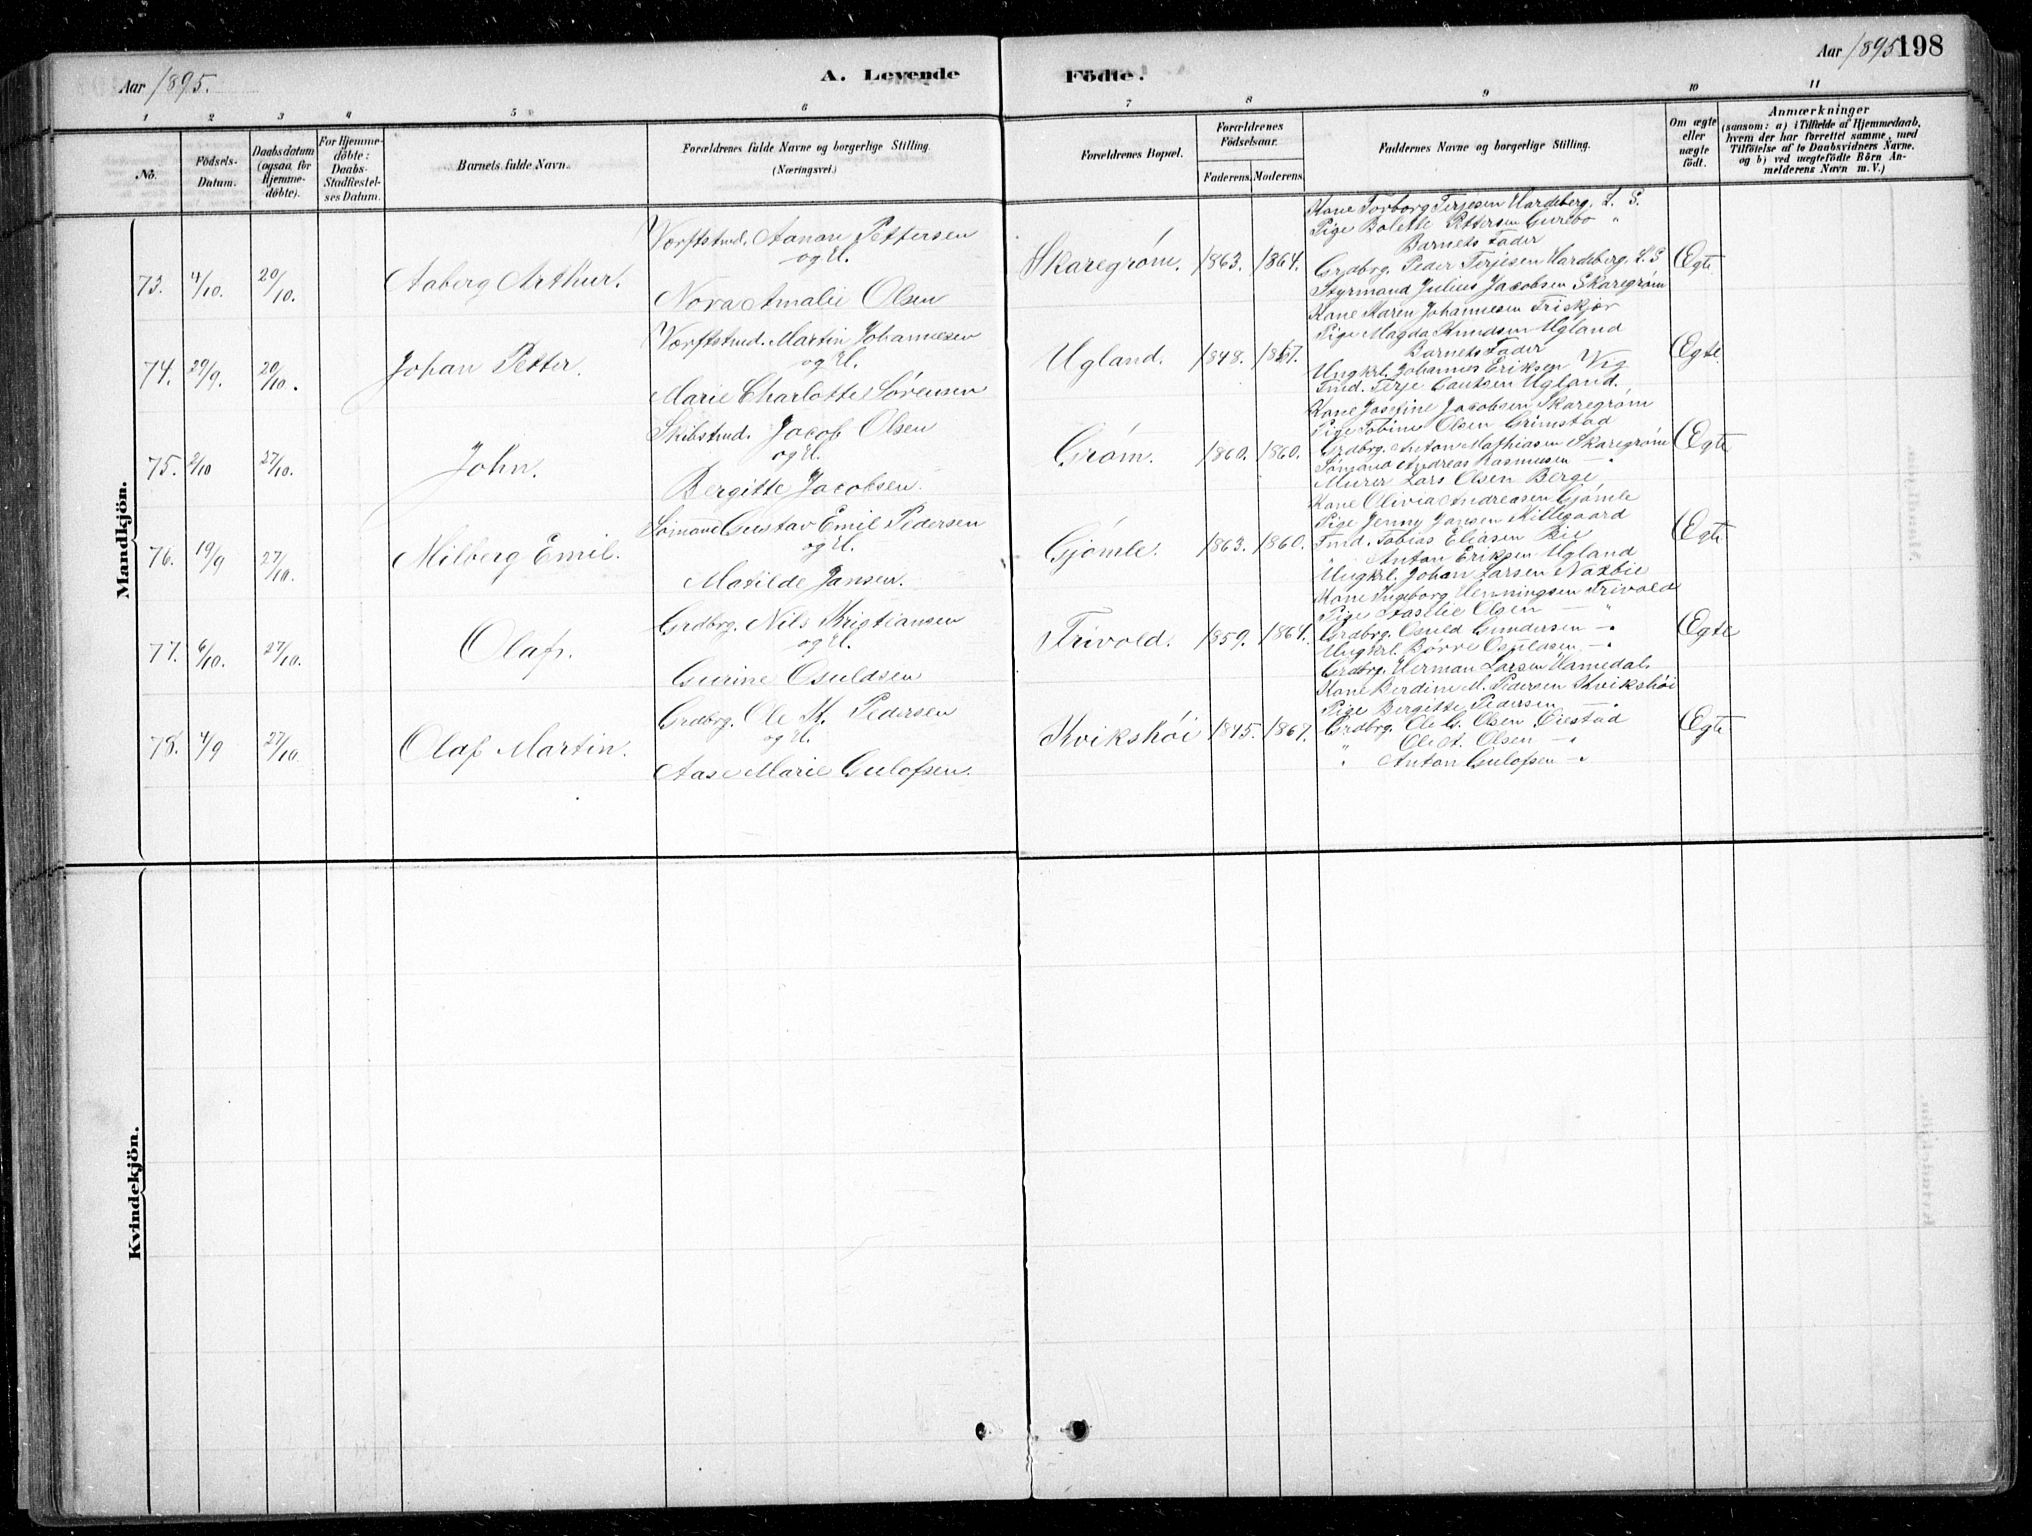 Aar 1895.
A. Levende
Födte.
Aar 1895
198
1 2 3 4 5 6 7 8 9 10 11
No.
Födsels-
Datum.
Daabsdatum
(ogsaa for
Hjemme-
döbte).
For Hjemme-
döbte:
Daabs-
Stadfæstel-
ses Datum.
Barnets fulde Navn.
Forældrenes fulde Navne og borgerlige Stilling.
(Næringsvei.)
Forældrenes Bopæl.
Forældrenes
Födselsaar.
Faderens. Moderens.
Faddernes Navne og borgerlige Stilling.
Om ægte
eller
uægte
födt.
Anmærkninger
(saasom: a) i Tilfælde af Hjemmedaab,
hvem der har forrettet samme, med
Tilföielse af to Daabsvidners Navne.
og b) ved uægtefödte Börn An-
melderens Navn m. V.)
Mandkjön.
73. 4/10. 20/10. Aaberg Arthur.
Værftstmd. Aanon Pettersen
og H.
Nora Amalie Olsen
Skaregrøm. 1863. 1864.
Kone Torborg Terjesen Hardeberg, L. S.
Pige Bolette Pettersen Gurebo "
Barnets Fader
Grdbrg. Peder Terjesen Hardeberg, L. S
Styrmand Julius Jacobsen Skaregrøm
Ægte
74. 29/9. 20/10. Johan Petter.
Værftstmd. Martin Johannesen
og H.
Marie Charlotte Sørensen
Ugland. 1848. 1857.
Kone Karen Johannesen Friskjær
Pige Magda Knudsen Ugland
Barnets Fader
Ungkrl. Johannes Eriksen Vig
Tmd. Terje Cautsen Ugland.
Ægte.
75. 2/10 27/10. John.
Skibstmd. Jacob Olsen
og H.
Bergitte Jacobsen.
Grøm. 1860. 1860.
Kone Josefine Jacobsen Skaregrøm
Pige Tobine Olsen Grimstad
Grdbrg. Anton Mathiasen Skaregrøm
Sømand Andreas Rasmusen — "
Murer Lars Olsen Berge
Ægte
76. 19/9 27/10. Milberg Emil.
Sømand Gustav Emil Pedersen
og H.
Matilde Jansen.
Gjømle. 1863. 1860.
Kone Olivia Andreasen Gjømle
Pige Jenny Jansen Killegaard
Tmd. Tobias Eliasen Bie
Anton Eriksen Ugland
Ungkrl. Johan Larsen Naxbie
Ægte
77. 6/10. 27/10. Olaf.
Grdbrg. Nils Kristiansen
og H.
Gurine Osuldsen
Trivold. 1859. 1864.
Kone Ingeborg Henningsen Trivold
Pige Olsen — "
Grdbrg. Osuld Gundersen — "
Ungkrl. Børre Osuldsen — "
Grdbrg. Herman Larsen Hamedal.
Ægte
78. 4/9 27/10. Olaf Martin.
Grdbrg. Ole K. Pedersen
og H.
Aase Marie Gulofsen.
Kvikshöi 1845. 1867.
Kone Berdine M. Pedersen Kvikshöi
Pige Bergitte Pedersen — "
Grdbrg. Ole G. Olsen Øiestad
" Ole A. Olsen — "
" Anton Gulofsen — "
Ægte
Kvindekjön.